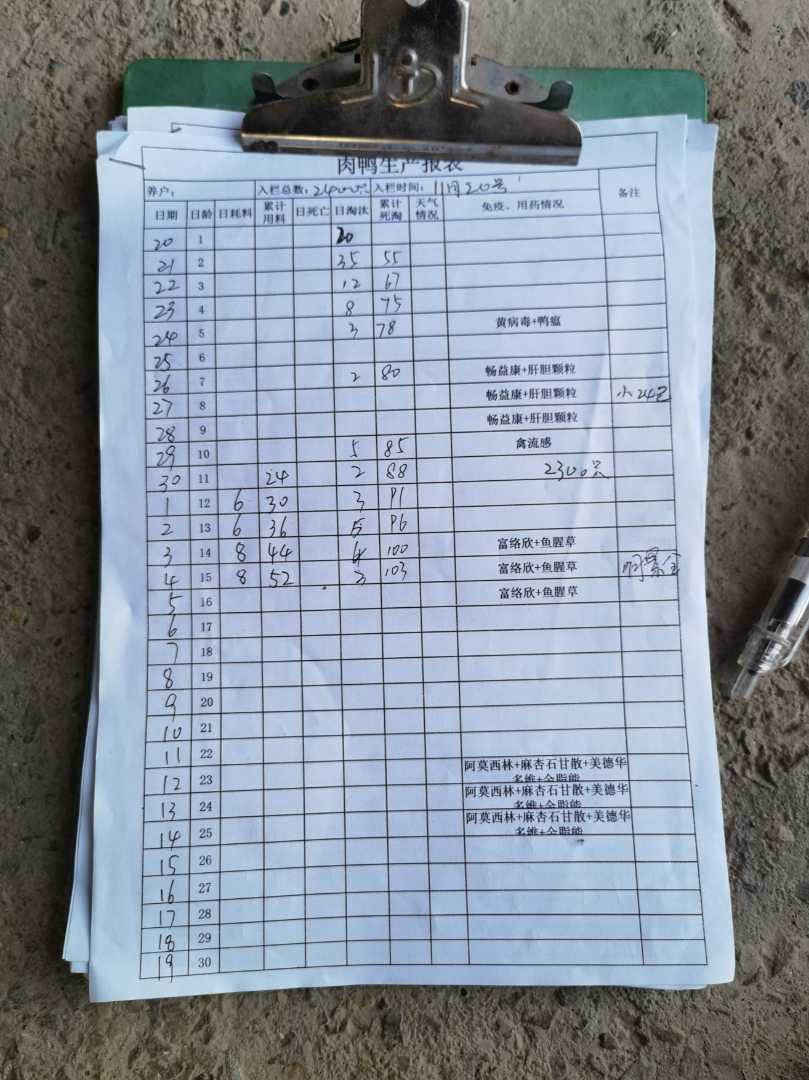 肉鸭生产报表
养户： 入栏总数： 入栏时间：11月20号
日期 日龄 日耗料 累计用料 日死亡 日淘汰 累计死淘 天气情况 免疫、用药情况 备注
20 1 20
21 2 35 55
22 3 12 67
23 4 8 75
24 5 3 78 黄病毒+鸭瘟
25 6
26 7 2 80 畅益康+肝胆颗粒
27 8 畅益康+肝胆颗粒
28 9 畅益康+肝胆颗粒
29 10 5 85 禽流感
30 11 24 2 88 2300只
1 12 6 30 3 91
2 13 6 36 5 96
3 14 8 44 4 100 富络欣+鱼腥草
4 15 8 52 3 103 富络欣+鱼腥草
5 16 富络欣+鱼腥草
6 17
7 18
8 19
9 20
10 21
11 22
12 23 阿莫西林+麻杏石甘散+美德华多维+全脂能
13 24 阿莫西林+麻杏石甘散+美德华多维+全脂能
14 25 阿莫西林+麻杏石甘散+美德华多维+全脂能
15 26
16 27
17 28
18 29
19 30